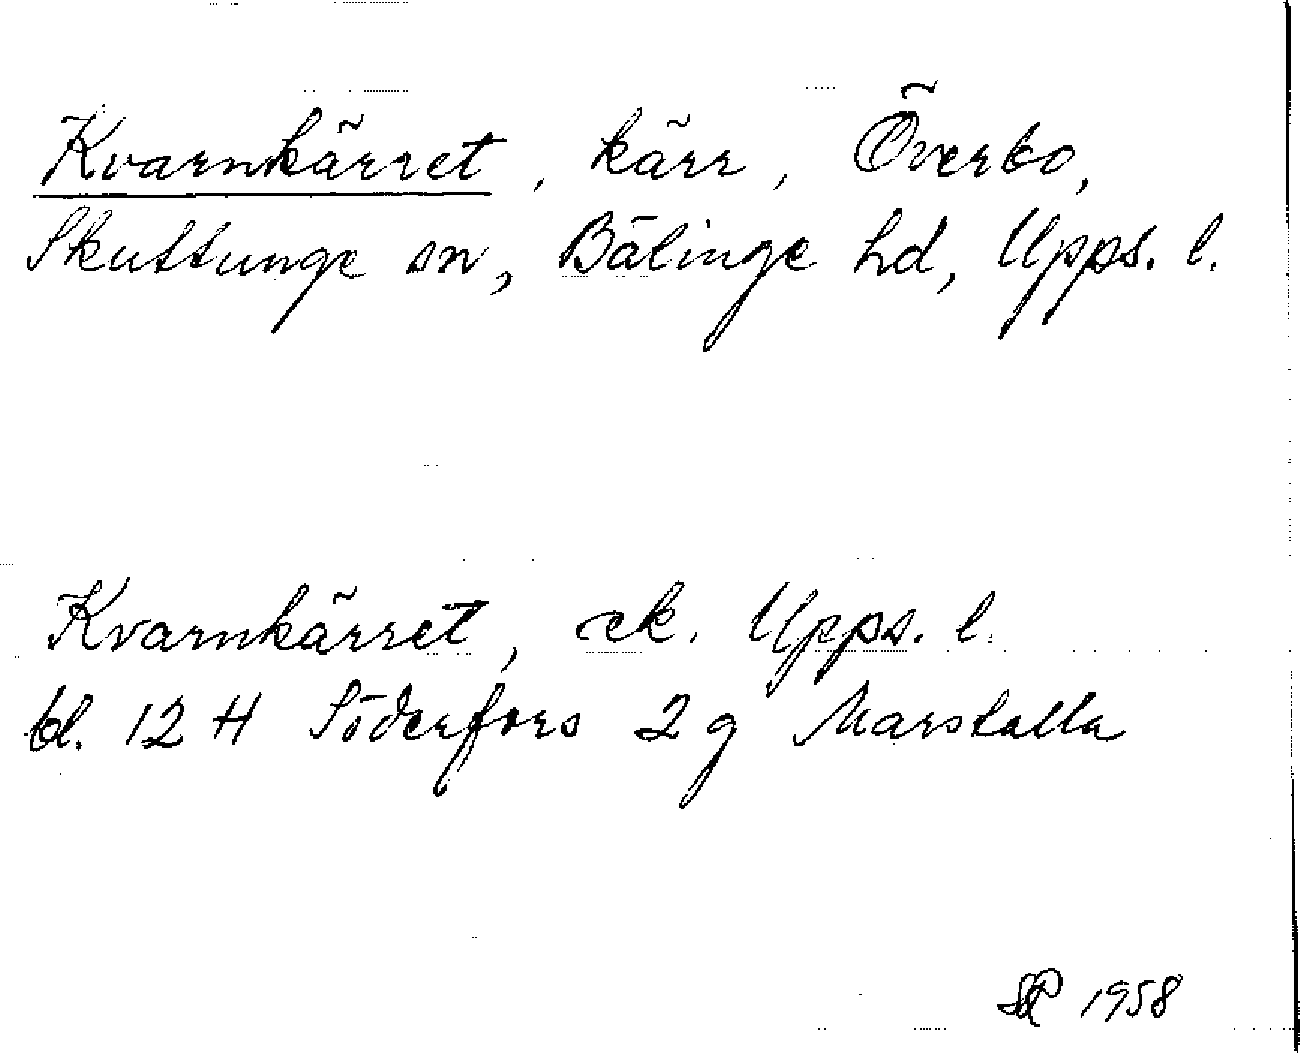 Kvarnkärret, kärr, Överbo,
Skuttunge sn, Bälinge hd, Upps. l.
Kvarnkärret, ek. Upps. l.
bl. 12 H Söderfors 2 g Marstalla
1958